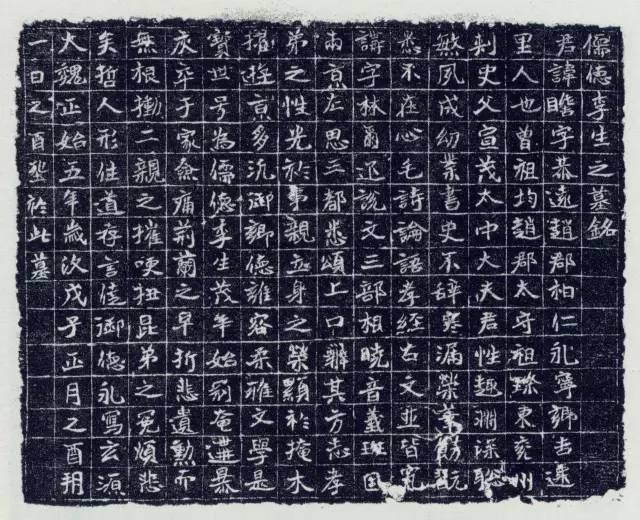 儒德李生之墓銘
君諱瞻字恭遠趙郡柏仁永寧鄉吉遷
里人也曾祖均趙郡太守祖璨東兗州
刺史父宣茂太中大夫君性趣淵深聡
敏夙成幼業書史不辞寒漏榮翫
悉不在心毛詩論語孝經古文並皆究
講字林爾迩說文三部相曉音義班固
兩京左思三都悉頌上口辯其方志孝
弟之性光於事親立身之榮顯於掩木
擢遊京多沉鄉德誰容柔雅文學是
寶世号為儒德李生茂年始奄遘暴
疾卒于家僉痛荊蘭之早折悲遺勲而
無根二親之摧哽昆弟之冤煩悲
矣哲人形往道存言佳鄉德永寫玄源
大魏正始五年歲次戊子正月之酉朔
一日之酉塟於此墓